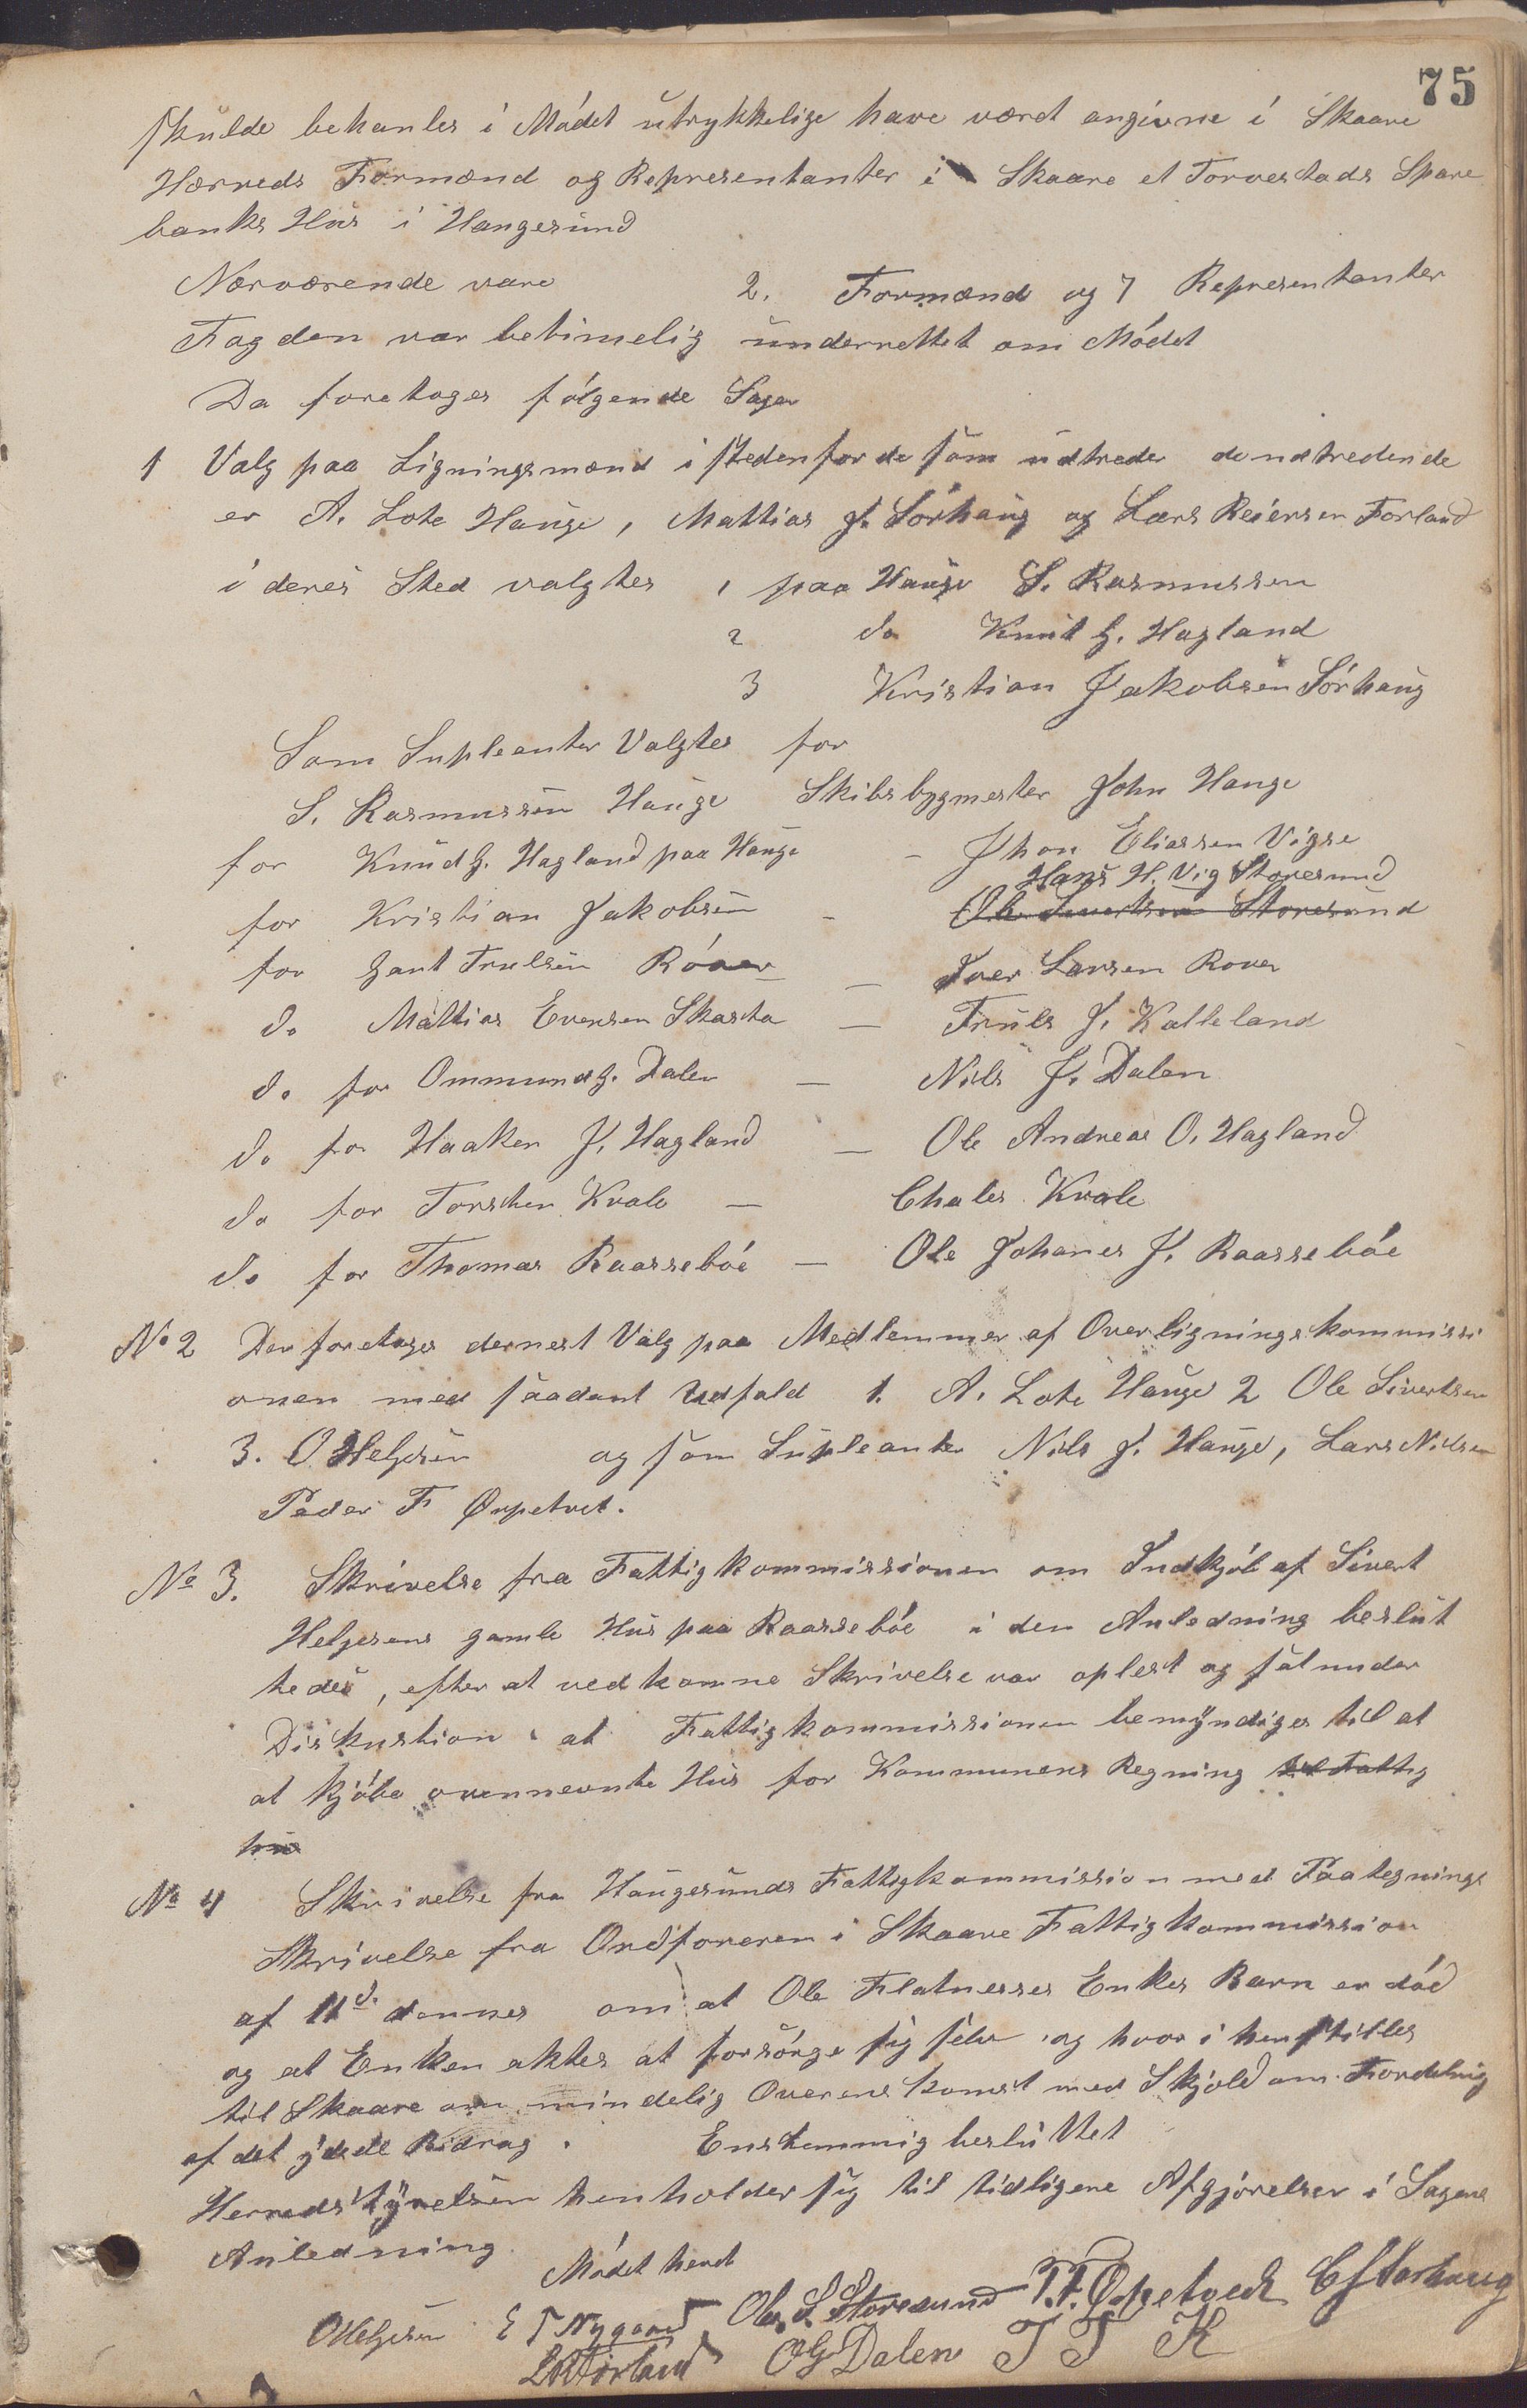 75
skulde behanles i Módet utrykkelige have været angivne i Skaare
Hærreds Formænd og Representanter i Skaare et Torvestads Spare
banks Hus i Haugesund
Nærværende vare 2. Formænd og 7 Representanter
Fogden var betimelig underrettet om Módet
Da foretoges fólgende Sager
1 Valg paa Ligningsmænd i stedenfor de som udtreder de udtredende
er A. Lote Hauge, Mattias J. Sórhaug og Lars Reiersen Forland
i deres Sted valgtes 1 paa Hauge S. Rasmussen
2 do Knut G. Hagland
3 Kristian Jakobsen Sórhaug
Som Supleanter Valgtes for
S. Rasmussen Hauge Skibsbygmester John Hauge
for Knud G. Hagland paa Hauge - Jhon Eliassen Vigse
Hans H. Vig Storesund
for Kristian Jakobsen - Ole Sivertsen Storesund
for Gant Trulsen Róver — Iver Larsen Rover
do Mattias Evensen Skasta — Truls J. Kalleland
do for Ommund G. Dalen — Nils J. Dalen
do for Haaken J. Hagland — Ole Andreas O. Hagland
do for Torsten Kvale — Chales Kvale
do for Thomas Raassebóe — Ole Johanes J. Raassebóe
No 2 Der foretoges dernest Valg paa Medlemmer af Overligningskommissi
onen med saadant Udfald 1. A. Lote Hauge 2 Ole Sivertsen
3. O Helgesen og som Supleanter Nils J. Hauge, Lars Nilsen
Peder F Ørpetvet.
No 3. Skrivelse fra Fattigkommissionen om Indkjób af Sivert
Helgesens gamle Hus paa Raassebóe i den Anledning beslut
tedes, efter at vedkomne Skrivelse var oplest og sat under
Diskustion, at Fattigkommissionen bemyndiges til at
at kjóbe ovennevnte Hus for Kommunens Regning til Fattig
hus
No 4 Skrivelse fra Haugesunds Fattigkommission med Paategnings
Skrivelse fra Ordforeren i Skaare Fattigkommission
af 11d. dennes om at Ole Flatnesses Enkes Barn er dód
og at Enken aktes at forsórge sig selv og hvor i henstilles
til Skaare om mindelig Overens komst med Skjold om Fordeling
af det ydede Bidrag. Enstemmig besluttet
Herredstyrelsen henholder sig til tidligere Afgjórelser i Sagens
Anledning.
Módet hevet
OHelgesen E T Nygaard Ole S. Storesund P. F. Ørpetvedt C J Sørhaug
L R Førland O G Dalen T T K